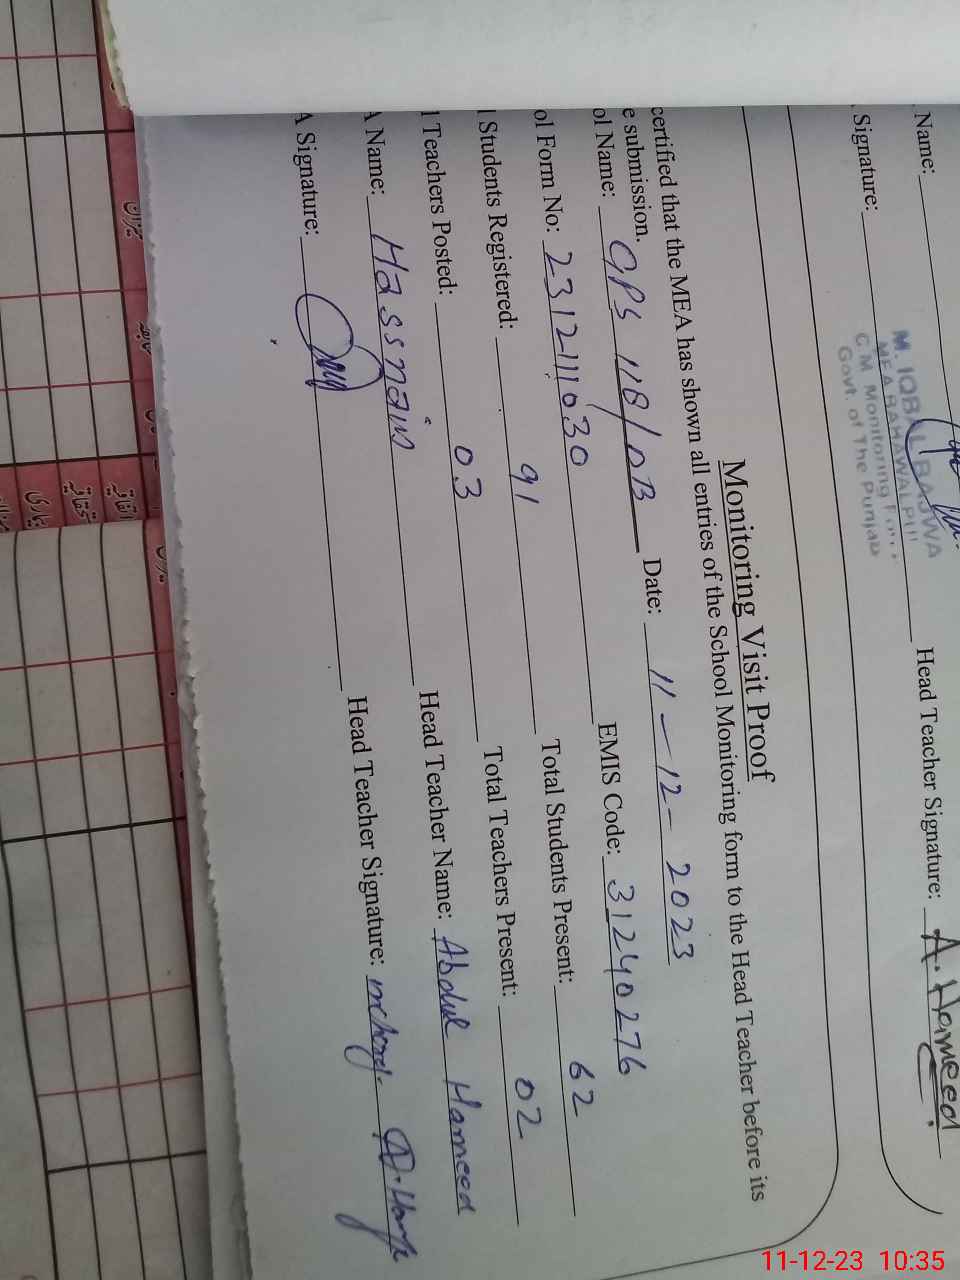 Name: Head Teacher Signature: A. Hameed
Signature:
M. IQBAL BAJWA
MEA BAHAWALPUR
C.M. Monitoring Force
Govt. of The Punjab
Monitoring Visit Proof
certified that the MEA has shown all entries of the School Monitoring form to the Head Teacher before its
e submission.
ol Name: GPS 11B/DB Date: 11-12-2023
ol Form No: 2312111030 EMIS Code: 31240276
l Students Registered: 91 Total Students Present: 62
l Teachers Posted: 03 Total Teachers Present: 02
A Name: Hassnain Head Teacher Name: Abdul Hameed
A Signature: Head Teacher Signature:
میزان
11-12-23 10:35